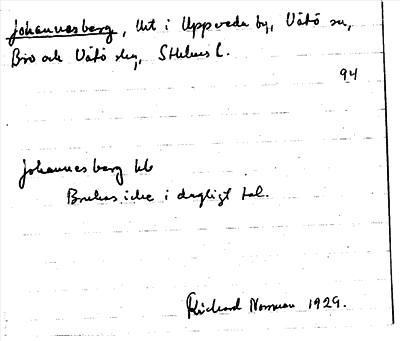 Johannesberg, lht i Uppveda by, Vätö sn,
Bro och Vätö skg, Sthlms l.
94
Johannesberg
Brukas icke i dagligt tal.
Rickard Norrman 1929.